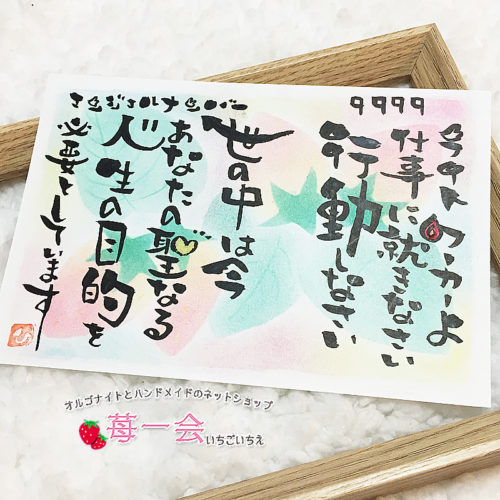 エンジェルナンバー 9999
ライトワーカーよ
仕事に就きなさい
行動しなさい
世の中は今
あなたの聖なる
人生の目的を
必要としています
オルゴナイトとハンドメイドのネットショップ
苺一会 いちごいちえ